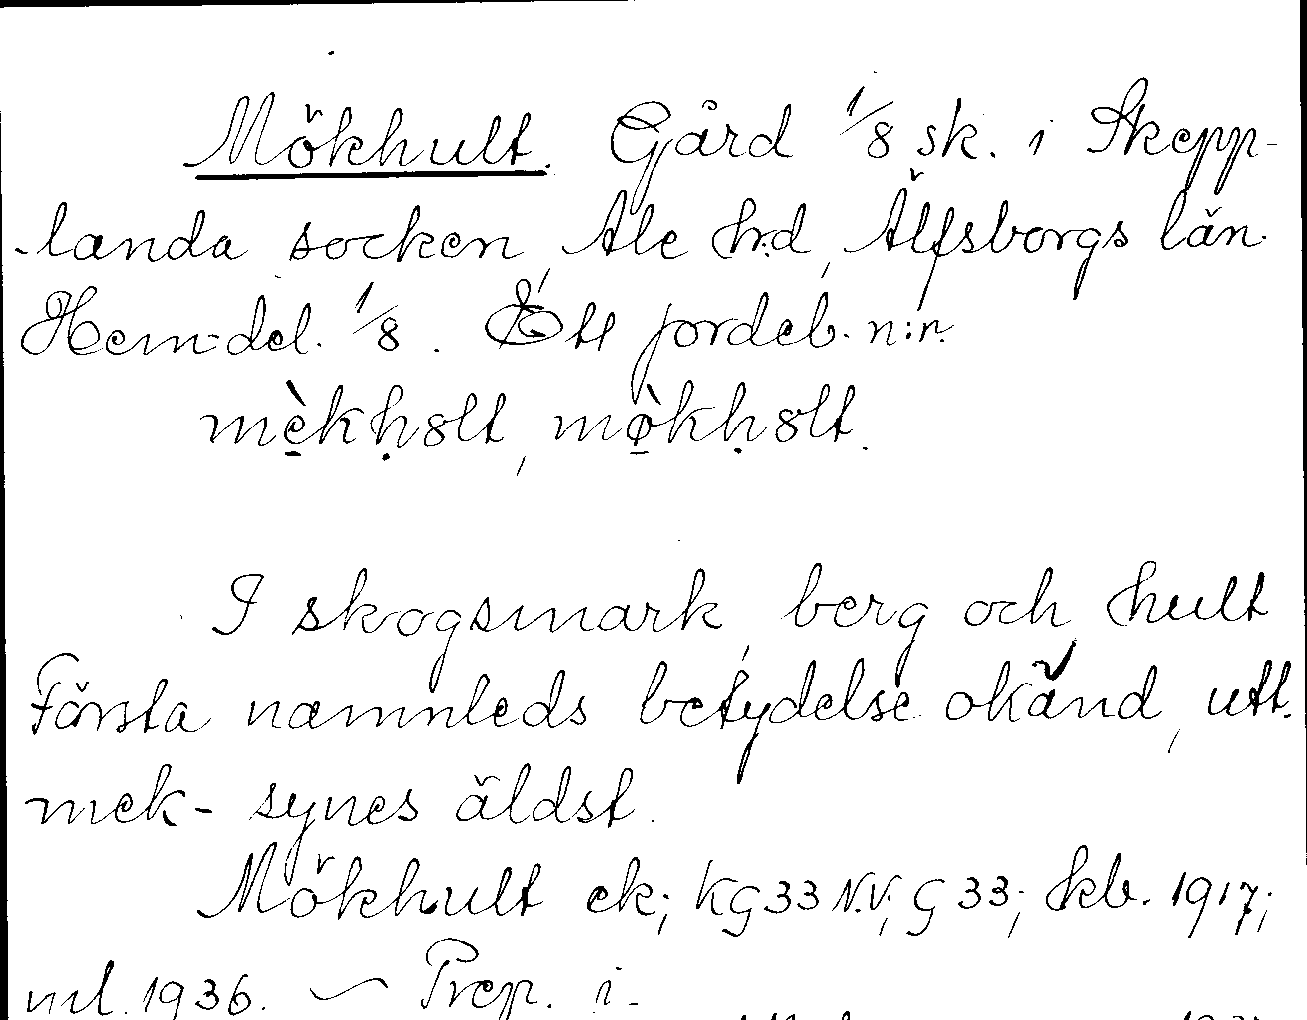 Mökhult. Gård 1/8 sk. i Skepp-
-landa socken, Ale h:d, Älfsborgs län.
Hem-del. 1/8. Ett jordeb. n:r.
mèkḥ8lt, mø̀kḥ8lt.
I skogsmark, berg och hult
Första namnleds betydelse okänd, utt.
mek- synes äldst.
Mökhult ek; KG33 N.V; G 33; skb. 1917;
ml. 1936. ~ Prep. i-